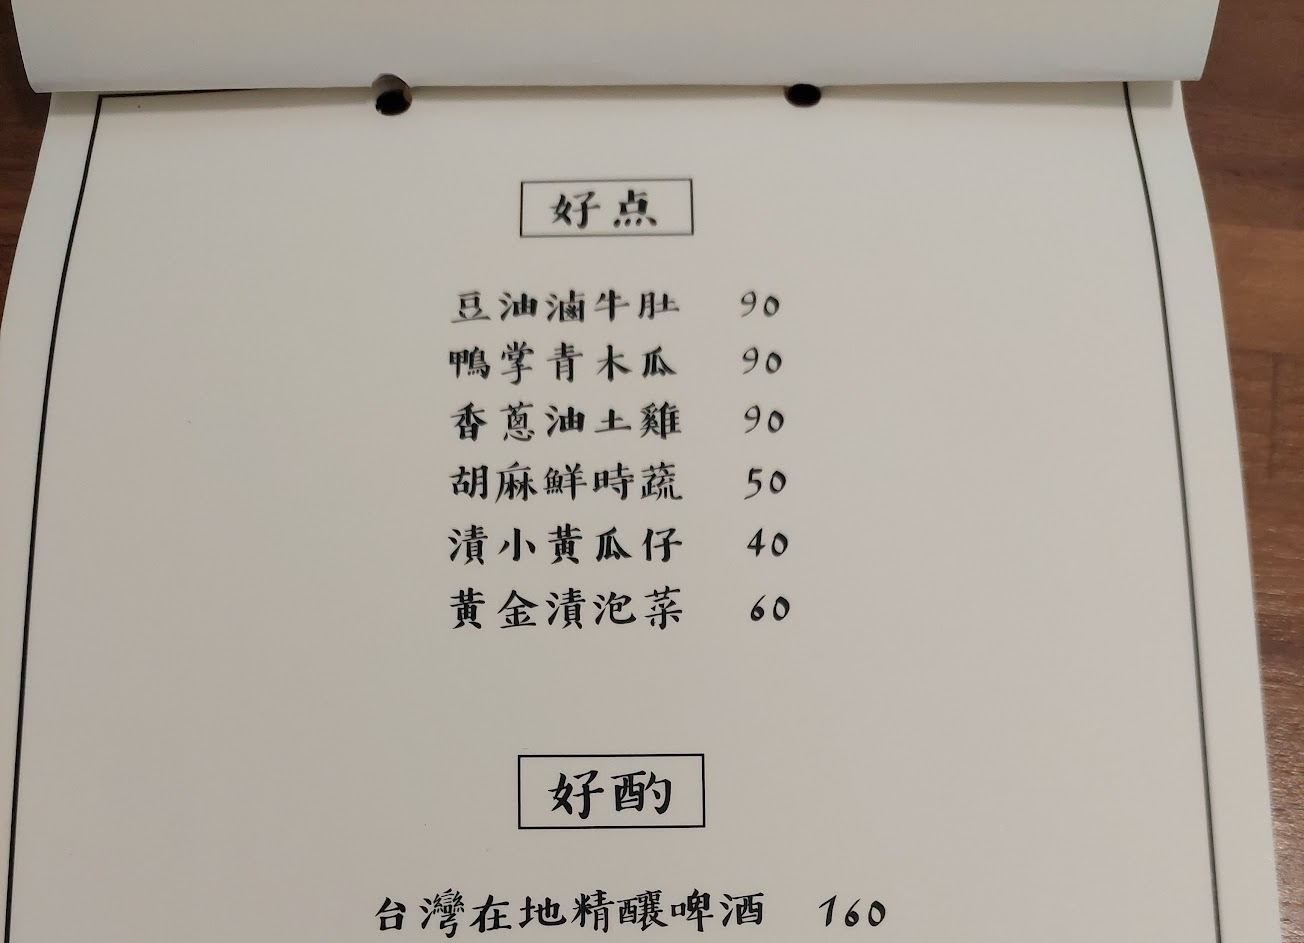 好点
豆油滷牛肚 90
鴨掌青木瓜 90
香蔥油土雞 90
胡麻鮮時蔬 50
漬小黃瓜仔 40
黃金漬泡菜 60
好酌
台灣在地精釀啤酒 160